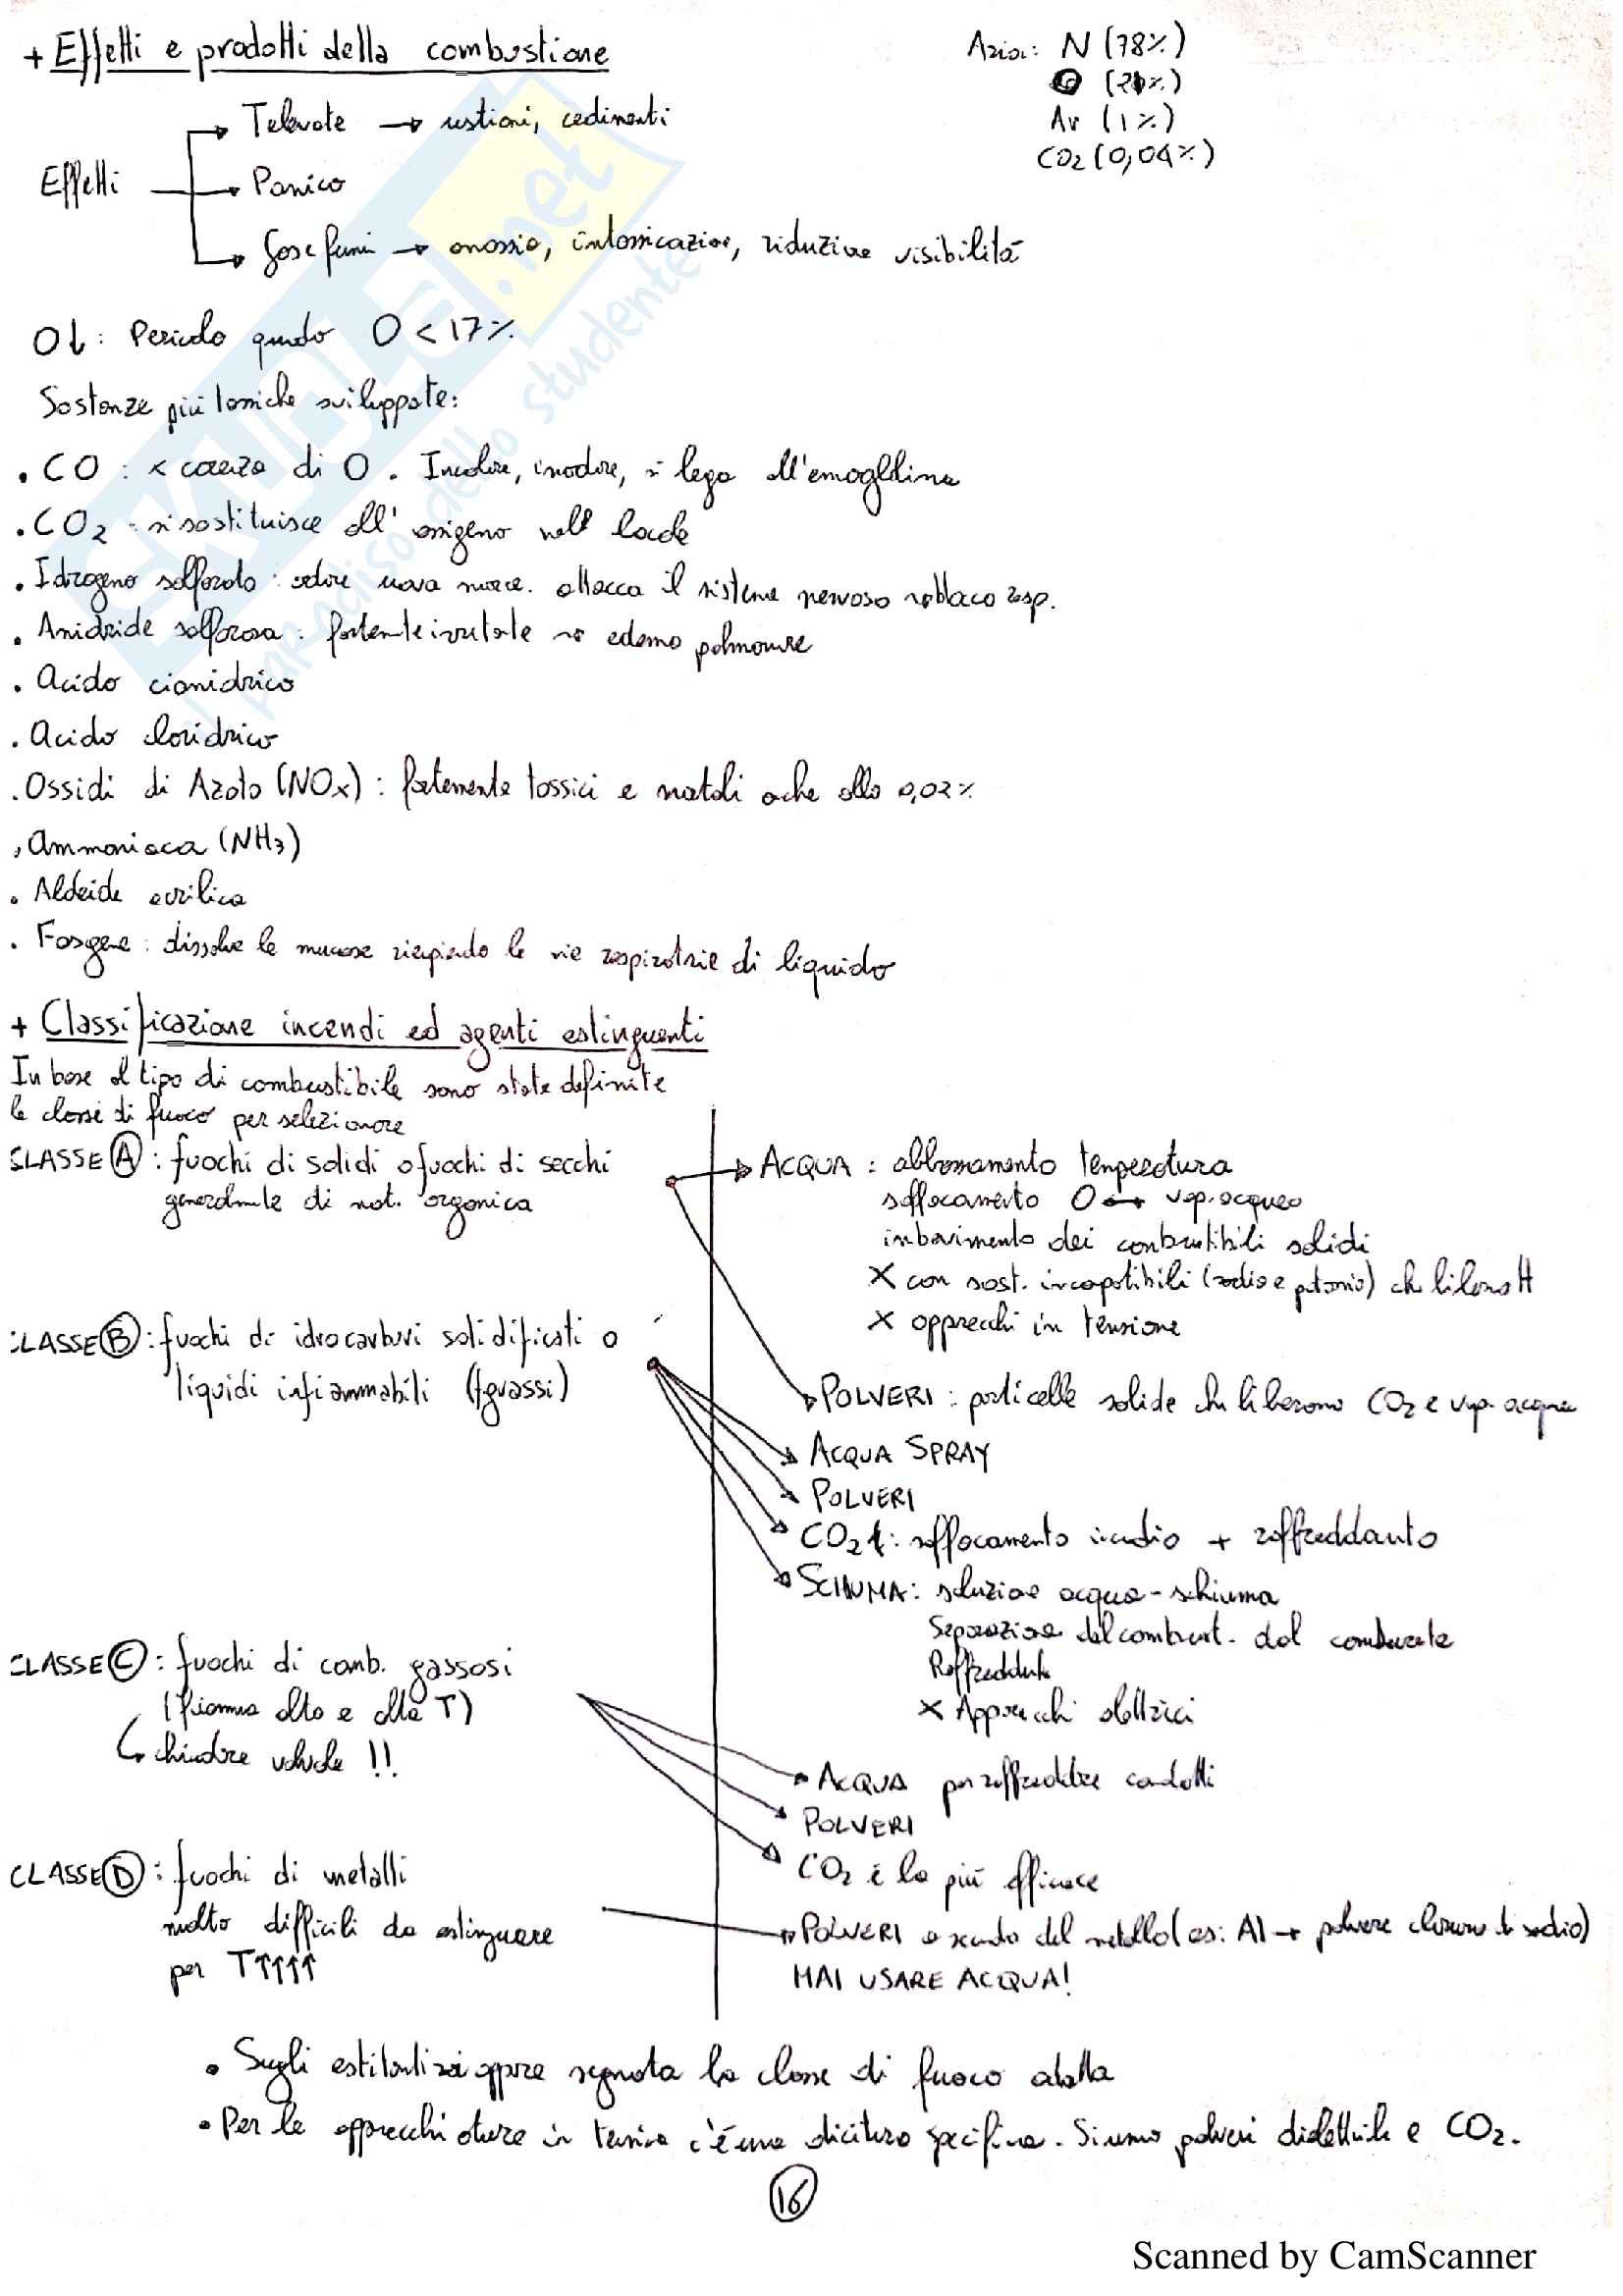 + Effetti e prodotti della combustione
Aria: N (78%)
O (21%)
Ar (1%)
CO2 (0,04%)
Effetti
T elevate → ustioni, cedimenti
Panico
Gas e fumi → anossia, intossicazione, riduzione visibilità
O↓: Pericolo quando O < 17%
Sostanze più tossiche sviluppate:
. CO : x carenza di O . Incolore, inodore, si lega all'emoglobina
. CO2 : si sostituisce all'ossigeno nell locale
. Idrogeno solforato : odore uova marce. attacca il sistema nervoso blocco resp.
. Anidride solforosa : fortemente irritante → edema polmonare
. Acido cianidrico
. Acido cloridrico
. Ossidi di Azoto (NOx) : fortemente tossici e mortali anche allo 0,02%
. Ammoniaca (NH3)
. Aldeide acrilica
. Fosgene : dissolve le mucose riempiendo le vie respiratorie di liquido
+ Classificazione incendi ed agenti estinguenti
In base al tipo di combustibile sono state definite
le classi di fuoco per selezionare
CLASSE A : fuochi di solidi o fuochi di secchi
generalmente di nat. organica
ACQUA : abbassamento temperatura
soffocamento O ↔ vap. acqueo
imbevimento dei combustibili solidi
X con sost. incompatibili (sodio e potassio) che liberano H
X apparecchi in tensione
CLASSE B : fuochi di idrocarburi solidificati o
liquidi infiammabili (+grassi)
POLVERI : particelle solide che liberano CO2 e vap. acqueo
ACQUA SPRAY
POLVERI
CO2 : soffocamento incendio + raffreddamento
SCHIUMA : soluzione acqua-schiuma
Separazione del combust. dal comburente
Raffreddante
X Apparecchi elettrici
CLASSE C : fuochi di comb. gassosi
(fiamma alta e alta T)
↳ chiudere valvole !!
ACQUA per raffreddare condotti
POLVERI
CO2 è la più efficace
CLASSE D : fuochi di metalli
molto difficili da estinguere
per T↑↑↑↑
POLVERI a seconda del metallo (es: Al → polvere cloruro di sodio)
MAI USARE ACQUA!
• Sugli estintori appare segnata la classe di fuoco adatta
• Per le apparecchiature in tensione c'è una dicitura specifica. Si usano polveri dielettriche e CO2.
16
SKUOLA.net
il paradiso dello studente
Scanned by CamScanner